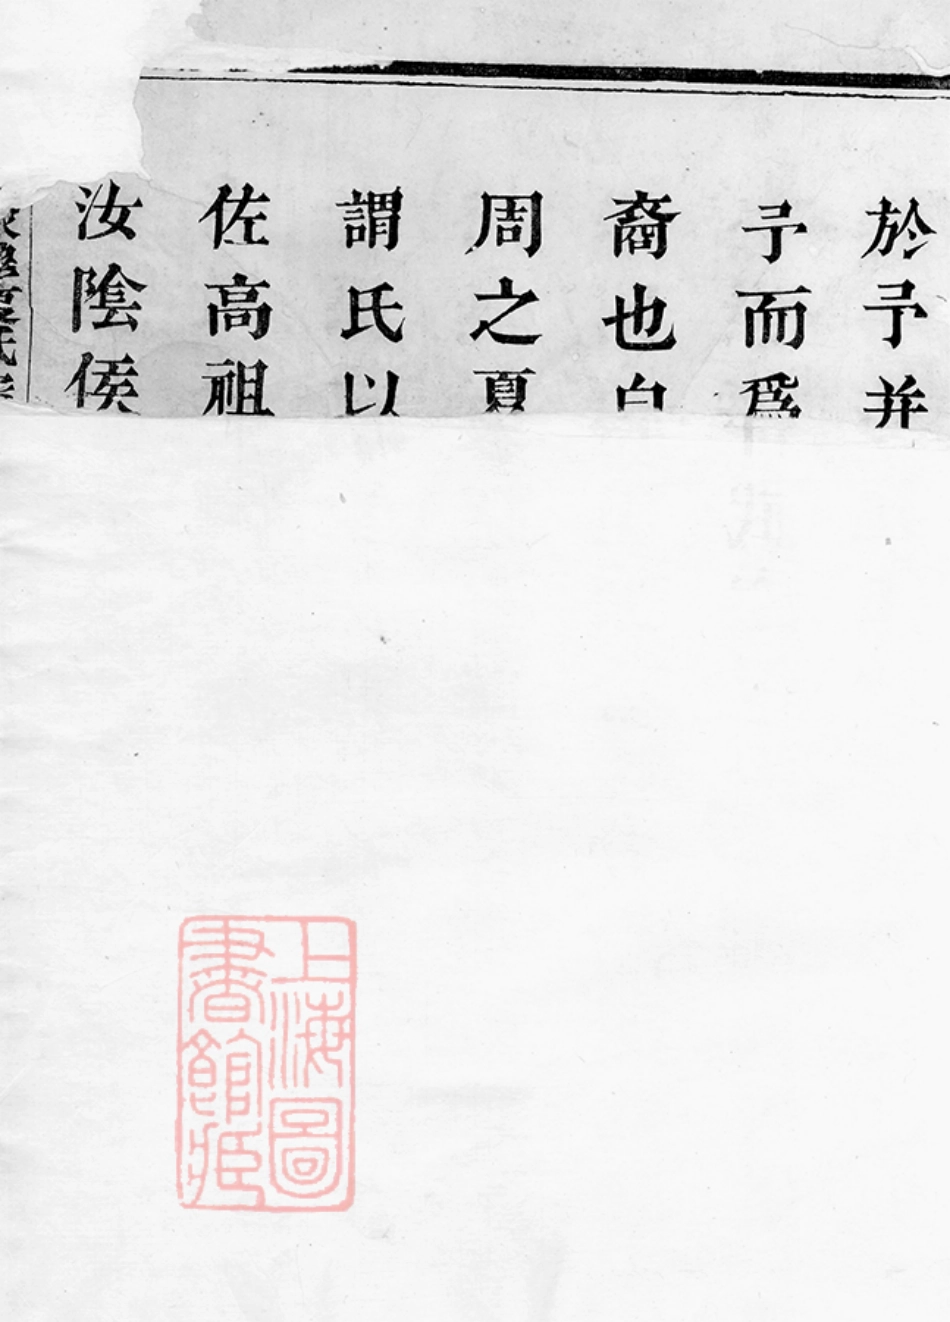 於予并
予而爲
裔也
周之夏
謂氏以
佐高祖
汝陰侯
上海圖
書館藏